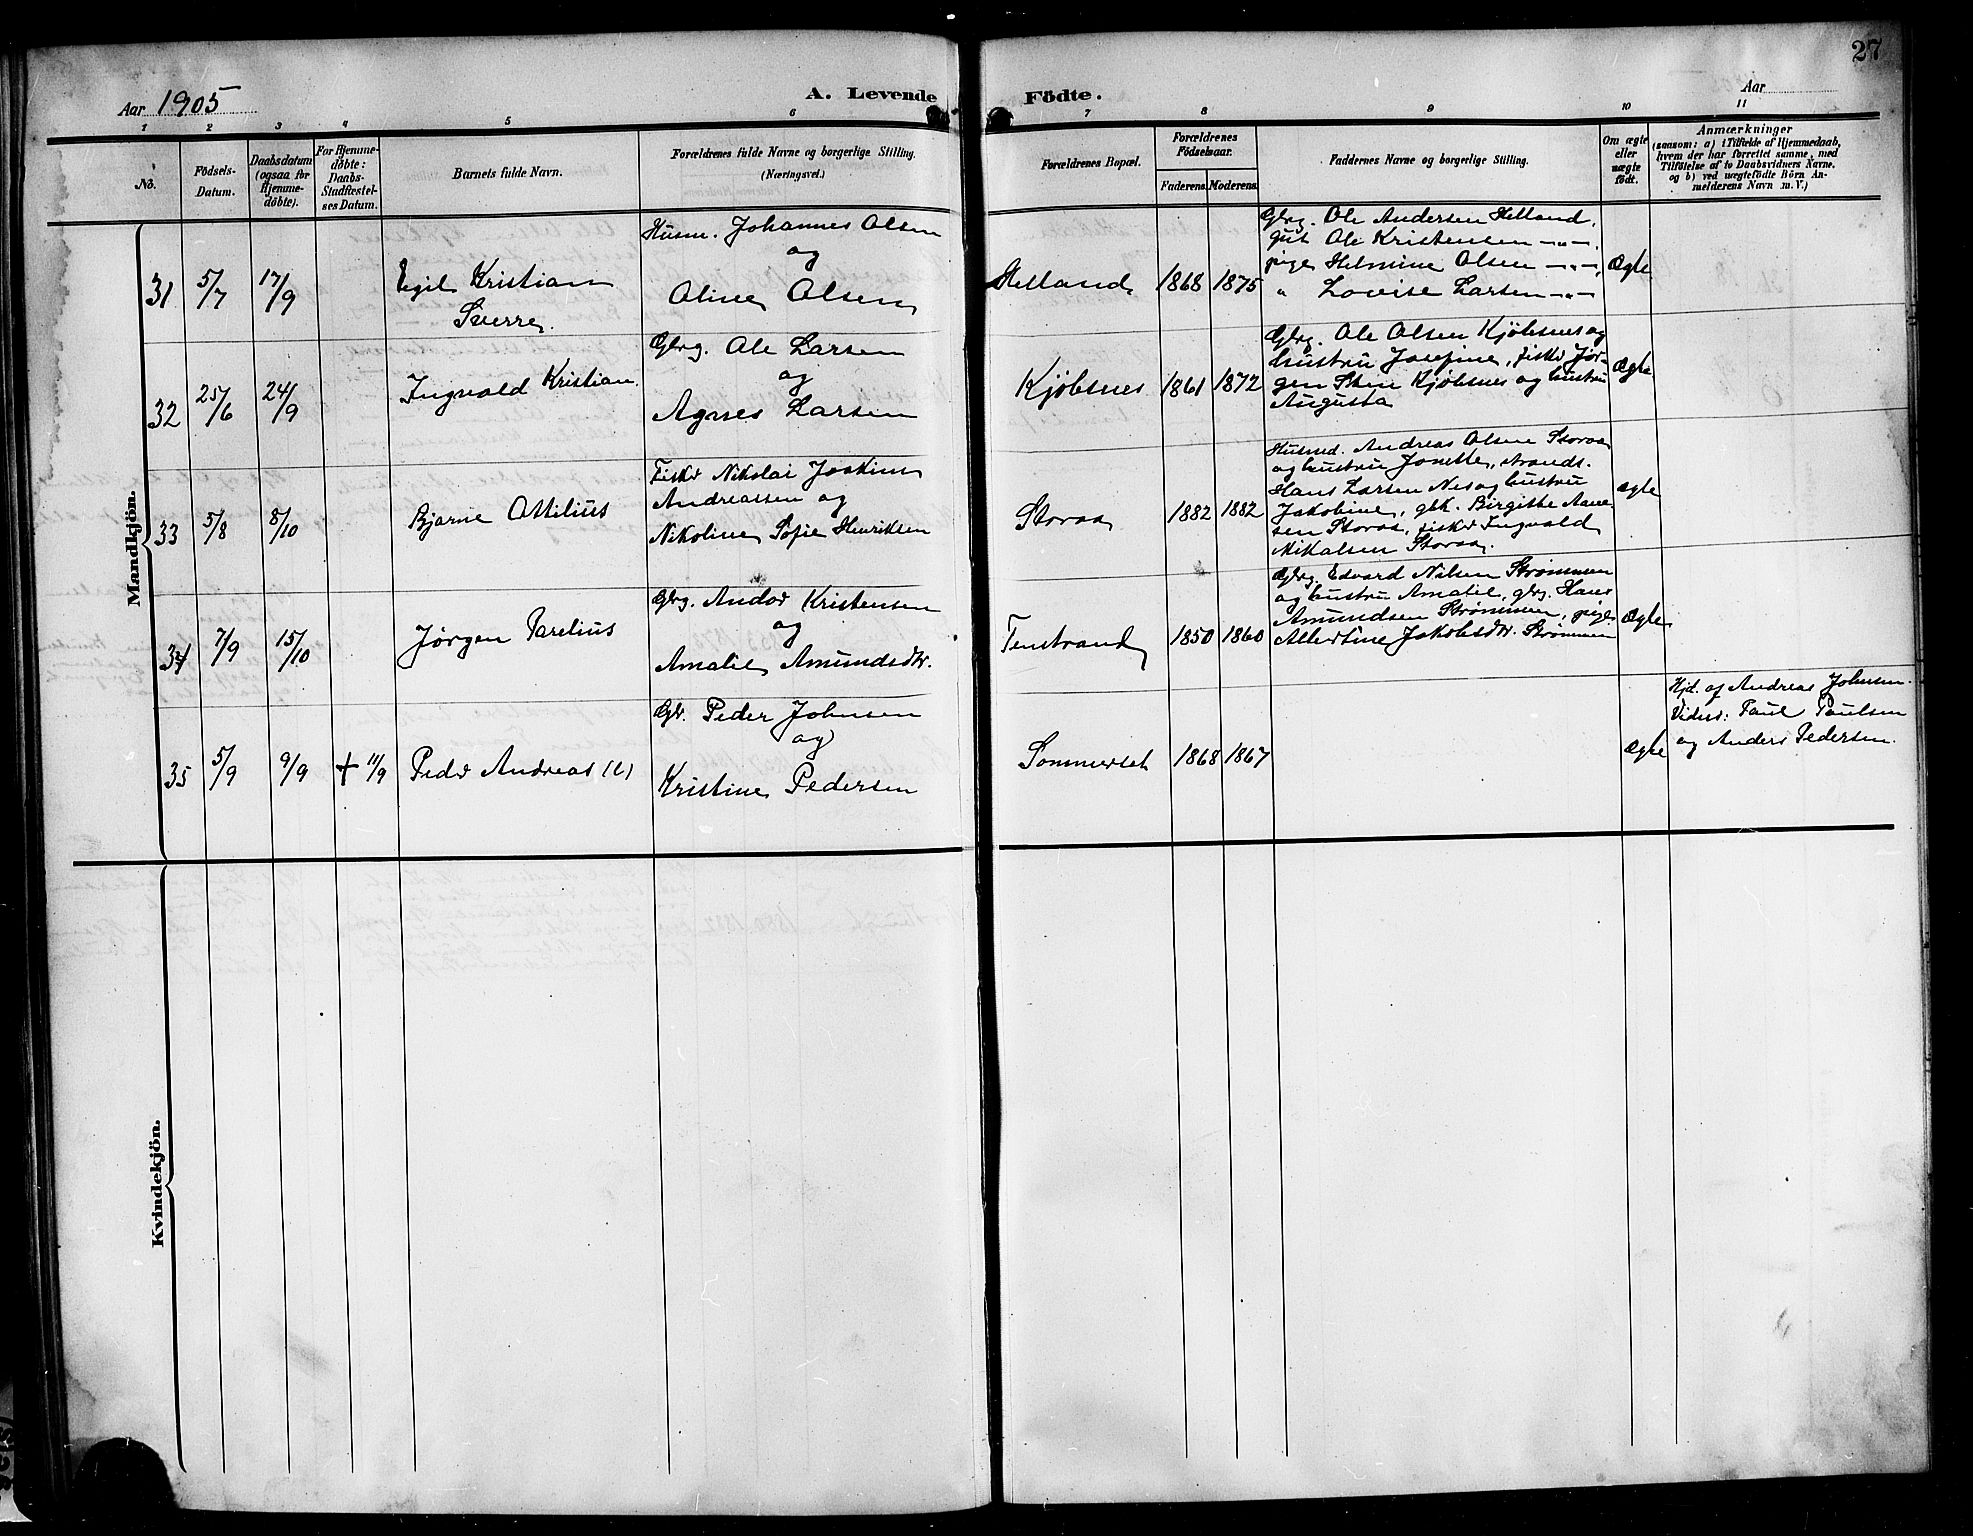 27
Aar 1905
A. Levende Födte.
Aar
1 2 3 4 5 6 7 8 9 10 11
No.
Födsels-
Datum.
Daabsdatum
(ogsaa for
Hjemme-
döbte).
For Hjemme-
döbte:
Daabs-
Stadfæstel-
ses Datum.
Barnets fulde Navn.
Forældrenes fulde Navne og borgerlige Stilling.
(Næringsvei.)
Forældrenes Bopæl.
Forældrenes
Födselsaar.
Faderens. Moderens.
Faddernes Navne og borgerlige Stilling.
Om ægte
eller
uægte
født.
Anmærkninger
(saasom: a) i Tilfælde af Hjemmedaab,
hvem der har forrettet samme, med
Tilföielse af to Daabsvidners Navne,
og b) ved uægtefödte Börn An-
melderens Navn m. V.)
Mandkjön.
31 5/7 17/9
Egil Kristian
Sverre
Husm. Johannes Olsen
og
Oline Olsen
Helland 1868 1875
Gbrg. Ole Andersen Helland,
gut Ole Kristensen -"-,
pige Helmine Olsen -"-,
" Lovise Larsen -"-
Ægte
32 25/6 24/9
Ingvald Kristian
Gbrg. Ole Larsen
og
Agnes Larsen
Kjöbsnes 1861 1872
Gbrg. Ole Olsen Kjöbsnes og
hustru Josefine, fisker Jör-
gen Steen Kjöbsnes og hustru
Augusta
Ægte
33 5/8 8/10
Bjarne Ottilius
Fisker Nikolai Joakim
Andreassen og
Nikoline Sofie Henriksen
Storaa 1882 1882
Husmd. Andreas Olsen Storaa
og hustru Jonette, strands.
Hans Larsen Nes og hustru
Jakobine, gbk. Birgithe Aane
sen Storaa, fisker Ingvald
Mikalsen Storaa.
Ægte
34 7/9 15/10
Jørgen Parelius
Gbrg. Andor Kristensen
og
Amalie Amundsdtr.
Tenstrand 1850 1860
Gbrg. Edvard Nilsen Strømmen
og hustru Amalie, gbrg. Hans
Amundsen Strømmen, pige
Albertine Jakobsdtr. Strømmen
Ægte
35 5/9 9/9 + 11/9
Peder Andreas (t)
Gbr. Peder Johnsen
og
Kristine Pedersen
Sommerset 1868 1867
Ægte
Hjd. af Andreas Johnsen.
Vidner: Paul Paulsen
og Anders Pedersen.
Kvindekjön.